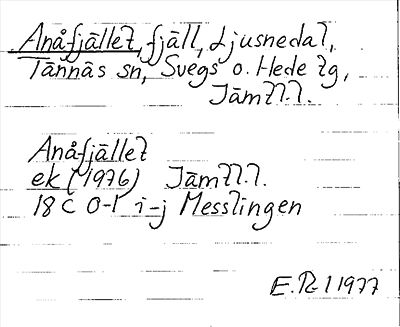 Anåfjället, fjäll, Ljusnedal,
Tännäs sn, Svegs o. Hede tg,
Jämtl.l.
Anåfjället
ek (1976) Jämtl.l.
18 C 0-1 i-j Messlingen
E.R. 1977